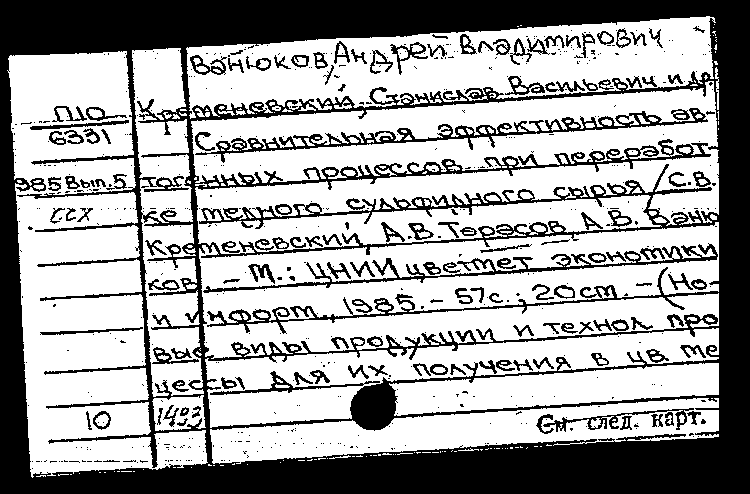 Ванюков, Андрей Владимирович
П10 Кременевский, Станислав Васильевич и др.
6331 Сравнительная эффективность ав-
985 Вып.5 тогенных процессов при переработ-
ссх ке медного сульфидного сырья / С.В.
Кременевский, А.В. Тарасов, А.В. Ваню
ков. – М.: ЦНИИцветмет экономики
и информ., 1985. – 57с.; 20см. – (Но-
вые виды продукции и технол. про
цессы для их получения в цв. ме
10 1493 См. след. карт.